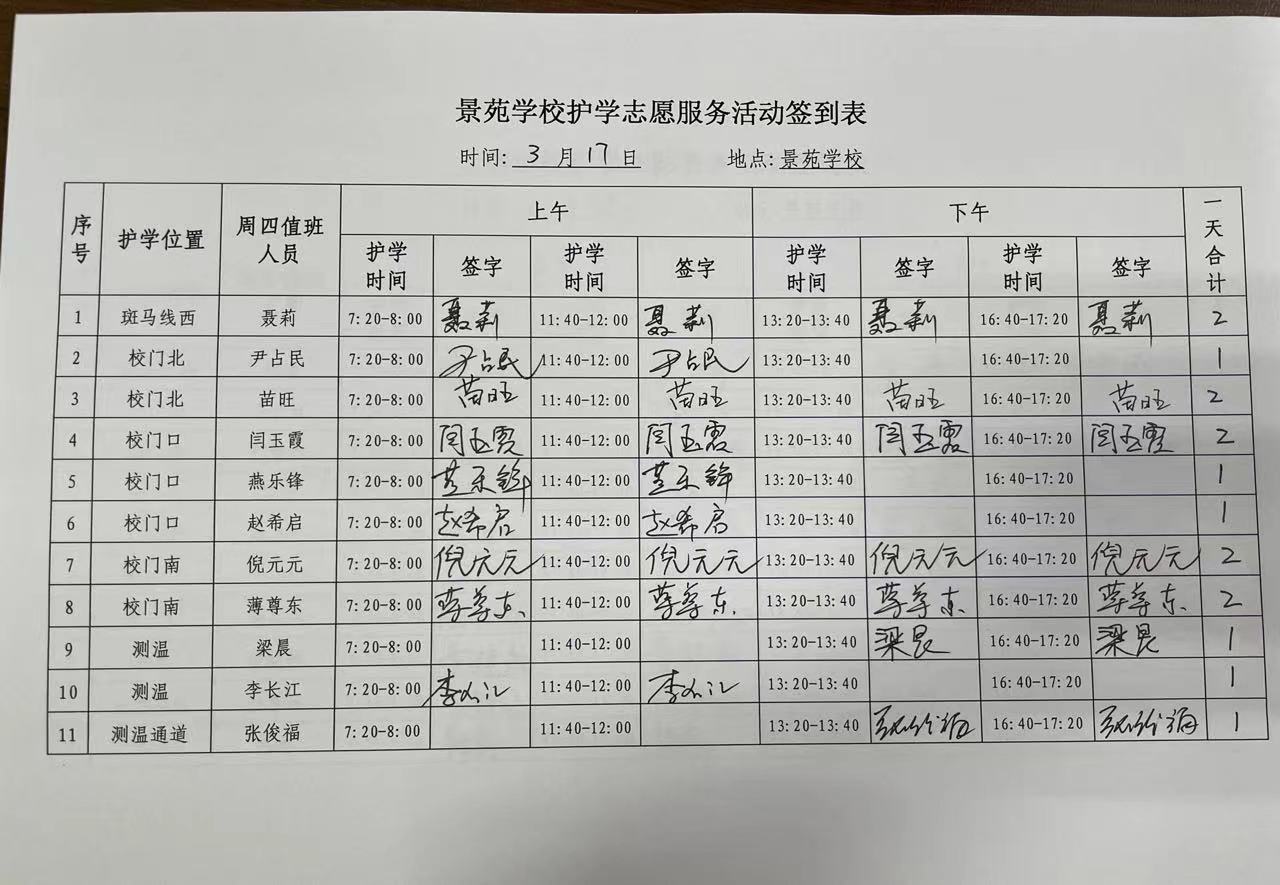 景苑学校护学志愿服务活动签到表
时间: 3 月 17 日 地点: 景苑学校
序号 护学位置 周四值班人员 上午 下午 一天合计
护学时间 签字 护学时间 签字 护学时间 签字 护学时间 签字
1 斑马线西 聂莉 7:20-8:00 聂莉 11:40-12:00 聂莉 13:20-13:40 聂莉 16:40-17:20 聂莉 2
2 校门北 尹占民 7:20-8:00 尹占民 11:40-12:00 尹占民 13:20-13:40 16:40-17:20 1
3 校门北 苗旺 7:20-8:00 苗旺 11:40-12:00 苗旺 13:20-13:40 苗旺 16:40-17:20 苗旺 2
4 校门口 闫玉霞 7:20-8:00 闫玉霞 11:40-12:00 闫玉霞 13:20-13:40 闫玉霞 16:40-17:20 闫玉霞 2
5 校门口 燕乐锋 7:20-8:00 燕乐锋 11:40-12:00 燕乐锋 13:20-13:40 16:40-17:20 1
6 校门口 赵希启 7:20-8:00 赵希启 11:40-12:00 赵希启 13:20-13:40 16:40-17:20 1
7 校门南 倪元元 7:20-8:00 倪元元 11:40-12:00 倪元元 13:20-13:40 倪元元 16:40-17:20 倪元元 2
8 校门南 薄尊东 7:20-8:00 薄尊东 11:40-12:00 薄尊东 13:20-13:40 薄尊东 16:40-17:20 薄尊东 2
9 测温 梁晨 7:20-8:00 11:40-12:00 13:20-13:40 梁晨 16:40-17:20 梁晨 1
10 测温 李长江 7:20-8:00 李长江 11:40-12:00 李长江 13:20-13:40 16:40-17:20 1
11 测温通道 张俊福 7:20-8:00 11:40-12:00 13:20-13:40 张俊福 16:40-17:20 张俊福 1